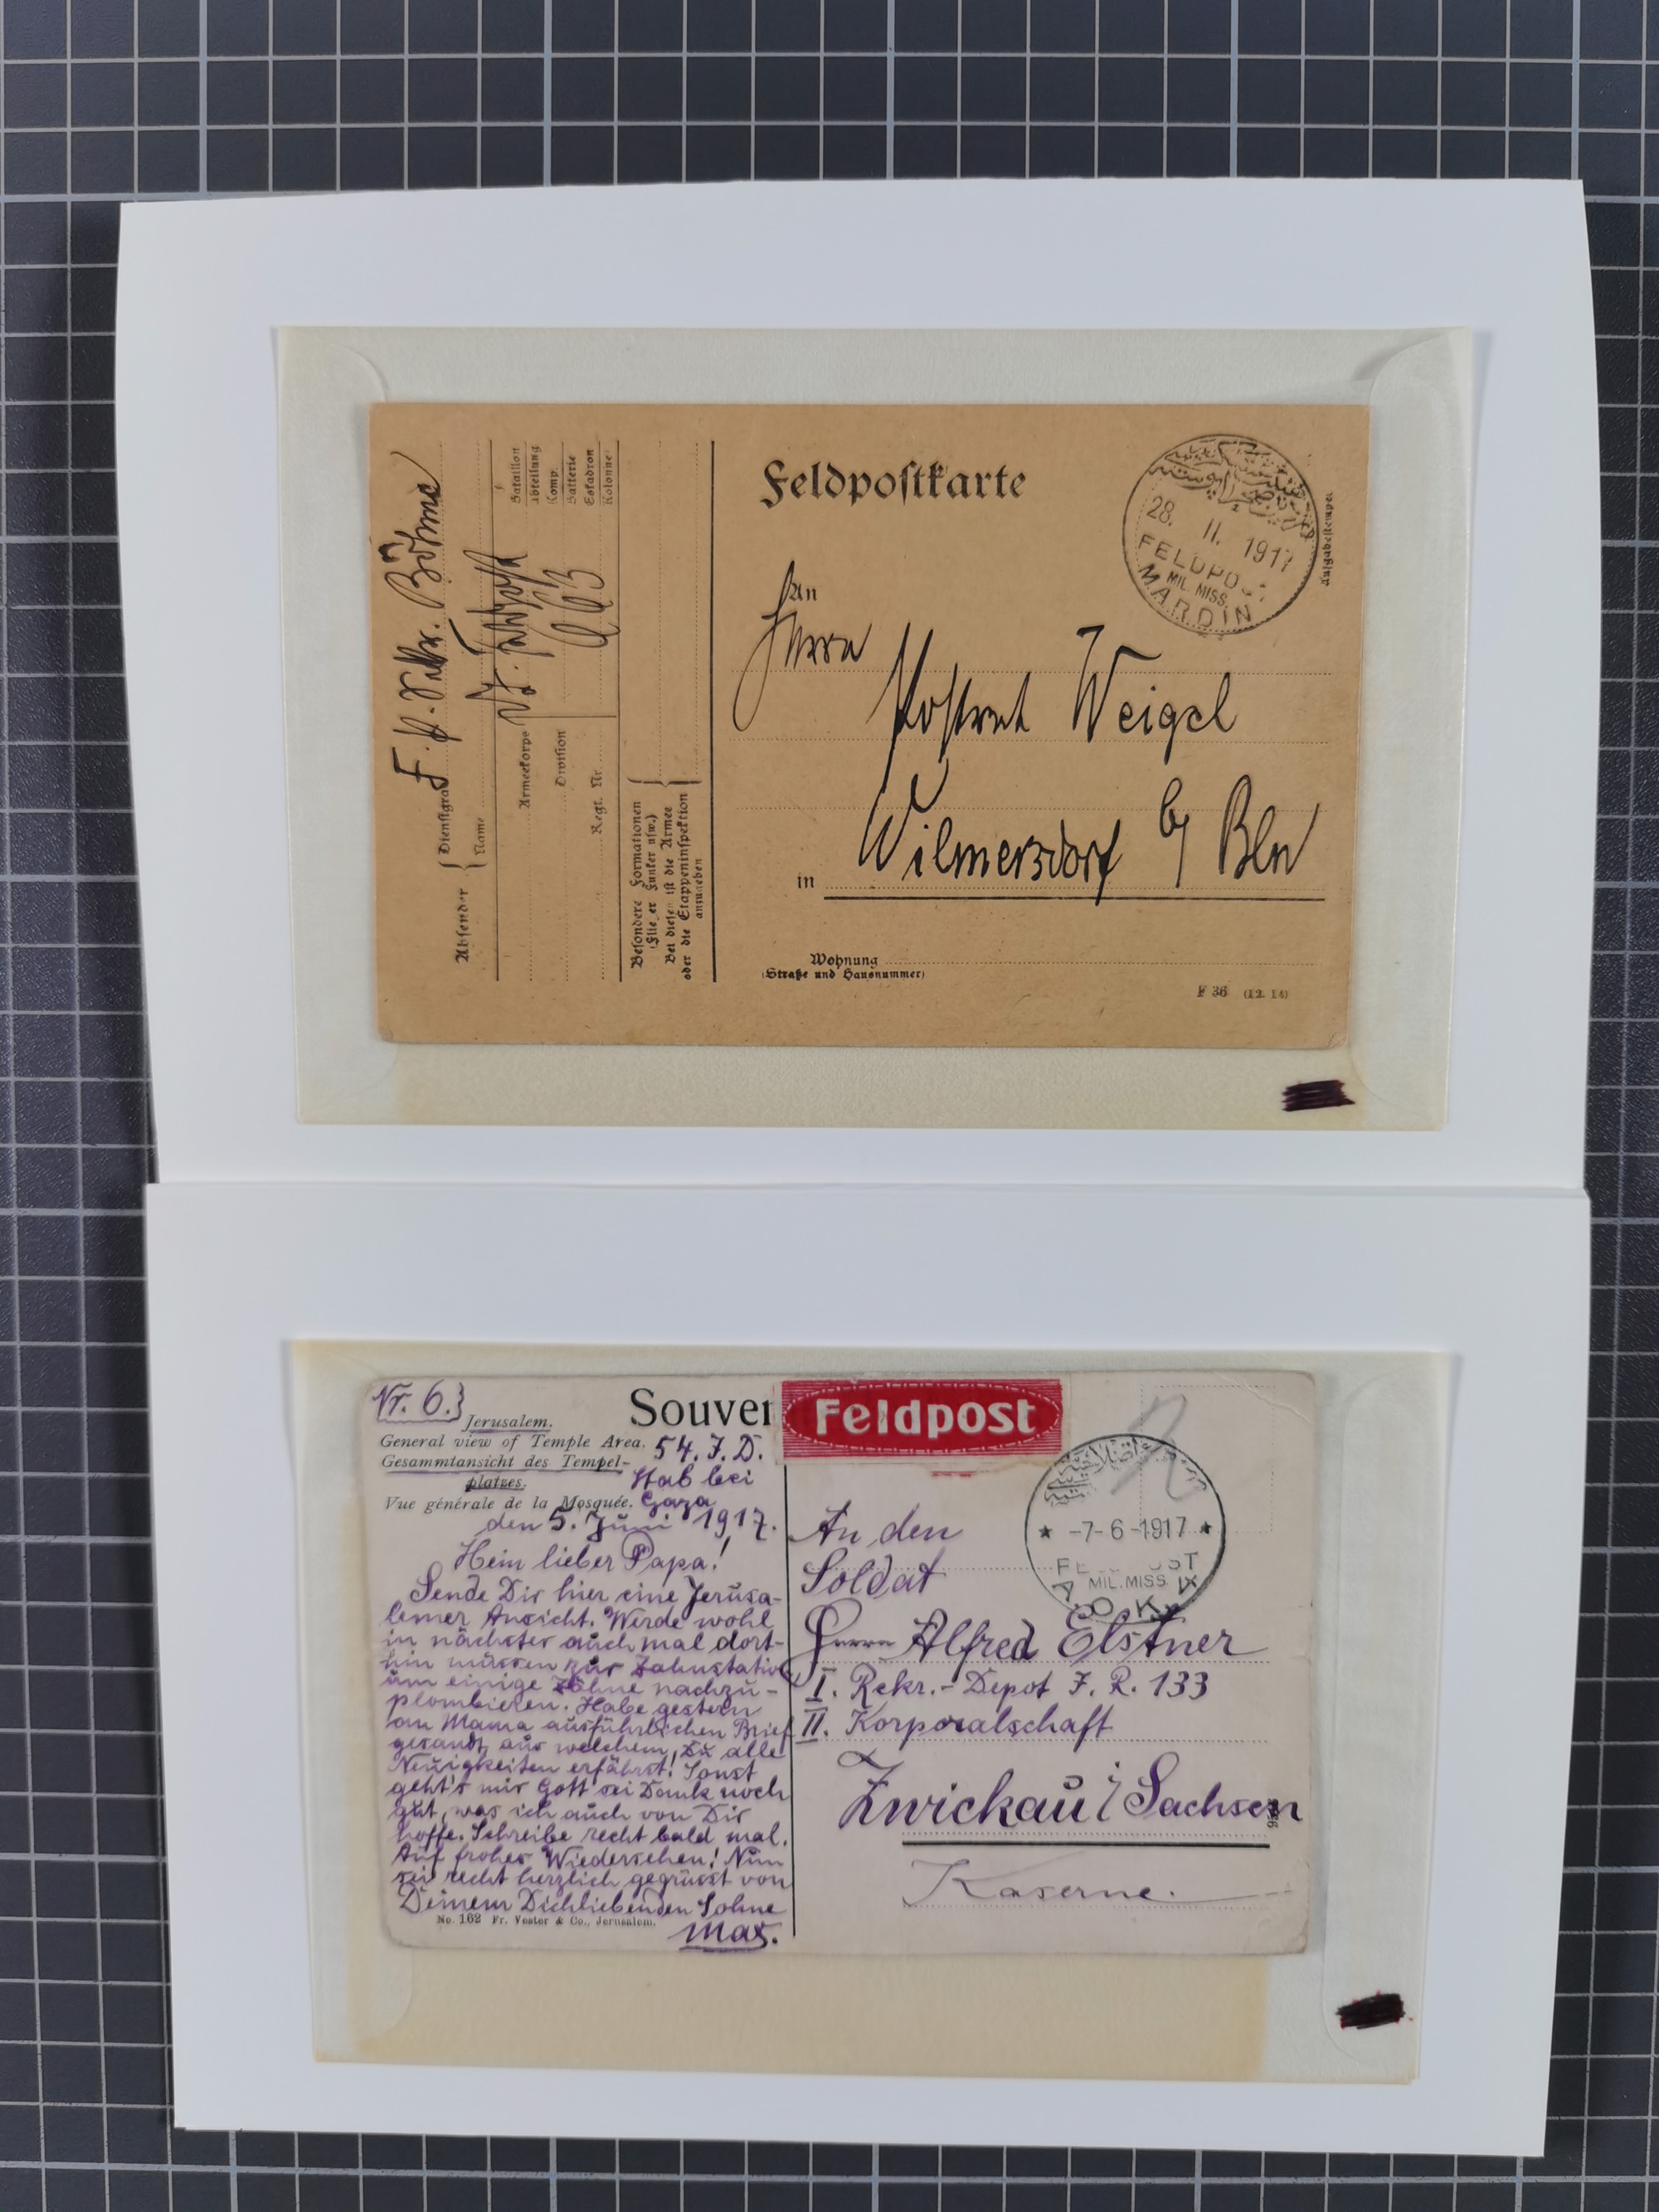 Feldpostkarte
28. II. 1917
FELDPOST
MIL. MISS.
MARDIN
Aufgabestempel
An
Herrn
Postrat Weigel
in Wilmersdorf b/ Bln
Wohnung
(Straße und Hausnummer)
F 36 (12. 14)
Absender
Dienstgrad
Name
F. p. Sekr. Böhme
Armeekorps
Division
Regt. Nr.
663
Bataillon
Abteilung
Komp.
Batterie
Eskadron
Kolonne
Besondere Formationen
(Flieger Funker usw.)
Bei diesen ist die Armee
oder die Etappeninspektion
anzugeben
Nr. 6.
Jerusalem.
General view of Temple Area.
Gesammtansicht des Tempel-
platzes.
Vue générale de la Mosquée.
Souver
Feldpost
54. I. D.
Stab bei
Gaza
den 5. Juni 1917.
Mein lieber Papa!
Sende Dir hier eine Jerusa-
lemer Ansicht. Werde wohl
in nächster auch mal dort-
hin müssen zur Zahnstation
um einige Zähne nachzu-
plombieren. Habe gestern
an Mama ausführlichen Brief
gesandt, aus welchem Du alle
Neuigkeiten erfährst! Sonst
geht's mir Gott sei Dank noch
gut, was ich auch von Dir
hoffe. Schreibe recht bald mal.
Auf frohes Wiedersehen! Nun
sei recht herzlich gegrüsst von
Deinem Dichliebenden Sohne
Max.
No. 162 Fr. Vester & Co., Jerusalem.
-7-6-1917
MIL. MISS.
A.O.K.
An den
Soldat
Herrn Alfred Elstner
I. Rekr.-Depot I. R. 133
II. Korporalschaft
Zwickau i/ Sachsen
Kaserne.